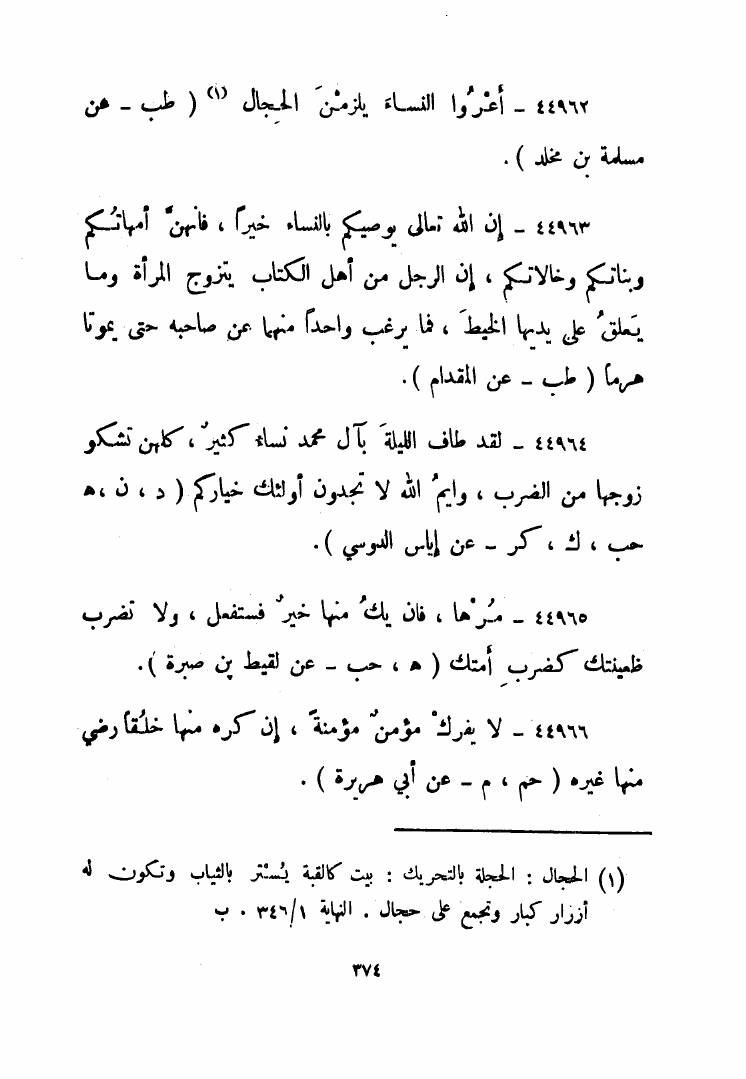 ٤٤٩٦٢ – أَعْرُوا النساءَ يلزمْنَ الحِجال (١) ( طب – هن
مسلمة بن مخلد ) .
٤٤٩٦٣ – إن الله تعالى يوصيكم بالنساء خيراً ، فانهنَّ أمهاتُكم
وبناتكم وخالاتكم ، إن الرجل من أهل الكتاب يتزوج المرأة وما
يَعلقُ على يديها الخيطَ ، فما يرغب واحداً منهما عن صاحبه حتى يموتا
هرماً ( طب – عن المقدام ) .
٤٤٩٦٤ – لقد طاف الليلةَ بآل محمد نساءٌ كثيرٌ ، كلهن تشكو
زوجها من الضرب ، وايمُ الله لا تجدون أولئك خياركم ( د ، ن ، ه
حب ، ك ، كر – عن إياس الدوسي ) .
٤٤٩٦٥ – مُرْها ، فان يكُ منها خيرٌ فستفعل ، ولا تضرب
ظعينتك كضربِ أمتك ( ه ، حب – عن لقيط بن صبرة ) .
٤٤٩٦٦ – لا يفركْ مؤمنٌ مؤمنةً ، إن كره منها خلُقاً رضي
منها غيره ( حم ، م – عن أبي هريرة ) .
(١) الحجال : الحجلة بالتحريك : بيت كالقبة يُسْتر بالثياب وتكون له
أزرار كبار وتجمع على حجال . النهاية ٣٤٦/١ . ب
٣٧٤